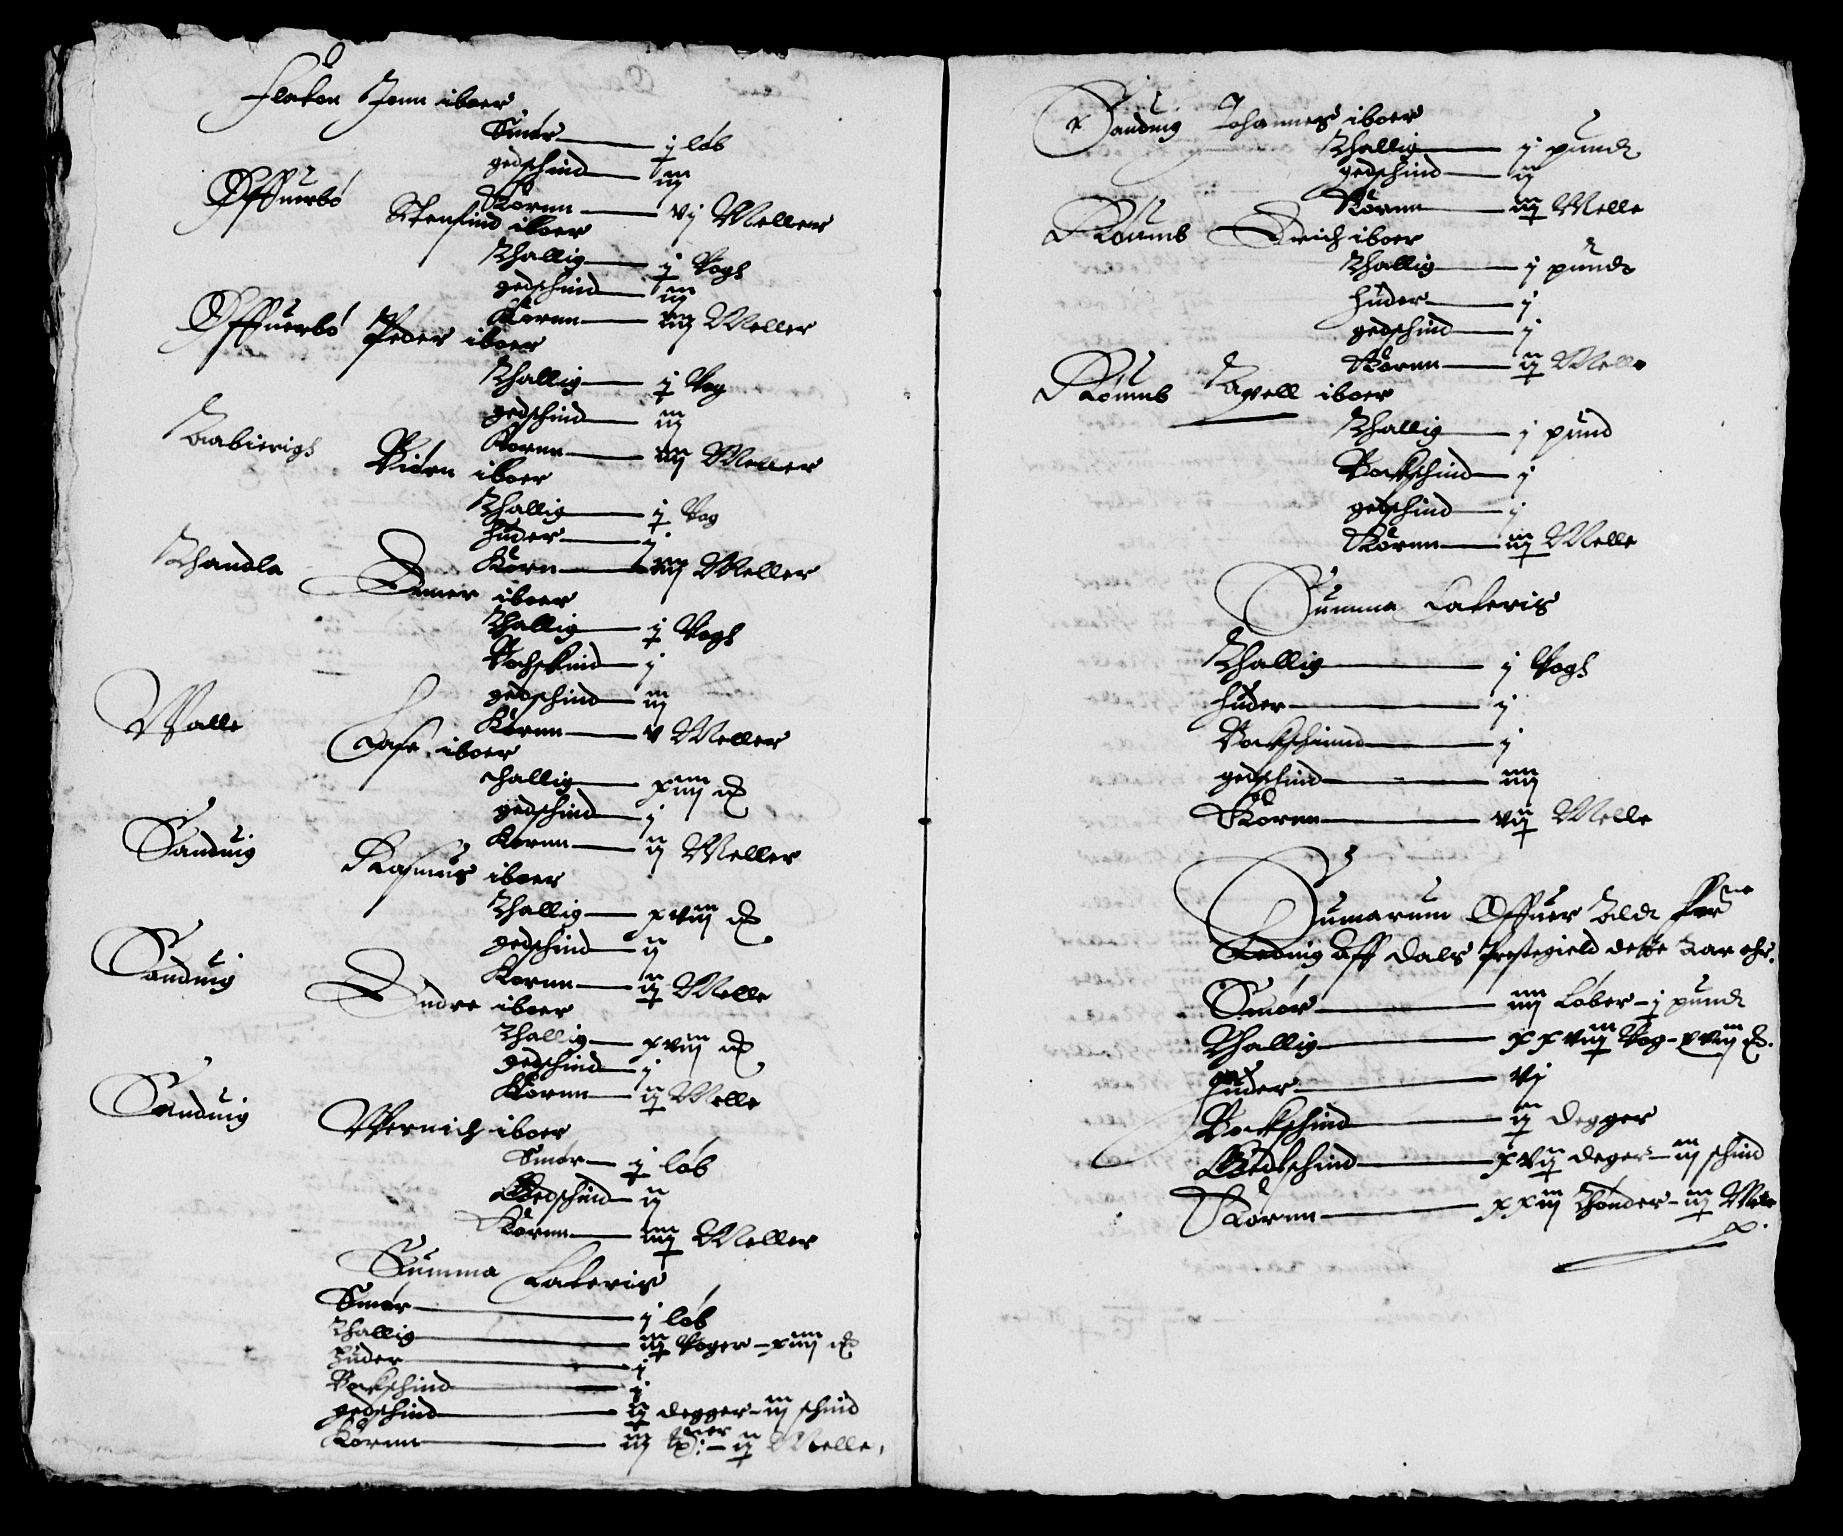 Flaten Jonn iboer
Smør — j løb
gedschind — iij
Kornn — vj Meller
Øffuerbø Stensind iboer
Thallig — j Vogh
gedschind — iij
Kornn — iiij Meller
Øffuerbø Peder iboer
Thallig — j Vog
gedschind — iij
Kornn — iiij Meller
Biørn iboer
Thallig — j Vog
huder — j
Korn — iiij Meller
Thandla Emer iboer
Thallig — j Vogh
Bockskind — j
gedschind — iij
Kornn — v Meller
Walle Lasse iboer
thallig — xiiij
gedschind — j
Kornn — ij Meller
Sanduig Rasmus iboer
Thallig — xviij
gedschind — ij
Kornn — ij Melle
Sanduig Endre iboer
Thallig — xviij
gedschind — j
Kornn — ij Melle
Sanduig Wernich iboer
Smør — j løb
Gedschind — ij
Kornn — iiij Meller
Summa Lateris
Smør — j løb
Thallig — iij Voger – xiiij
huder — j
Bockschind — j
gedschind — ij degger – iij schind
Kornn — iij – ij Melle
Sanduig Johannes iboer
Thallig — j pundt
gedschind — ij
Kornn — iij Melle
Erich iboer
Thallig — j pundt
huder — j
gedschind — j
Kornn — ij Melle
iboer
Thallig — j pund
Bockschind — j
gedschind — j
Kornn — iij Melle
Summa Lateris
Thallig — j Vogh
huder — j
Bockschinnd — j
gedschind — iiij
Kornn — vij Melle
Sumarum Offuer Aldt
Leding aff Dals Prestegield dette Aar ehr.
Smør — iiij Løber – j pundt
Thallig — xxviij Vog – xviij
huder — vj
Bockschind — ij degger
Gedschind — xvij deger – iij schind
Kornn — xxiij Thønder – iij Melle